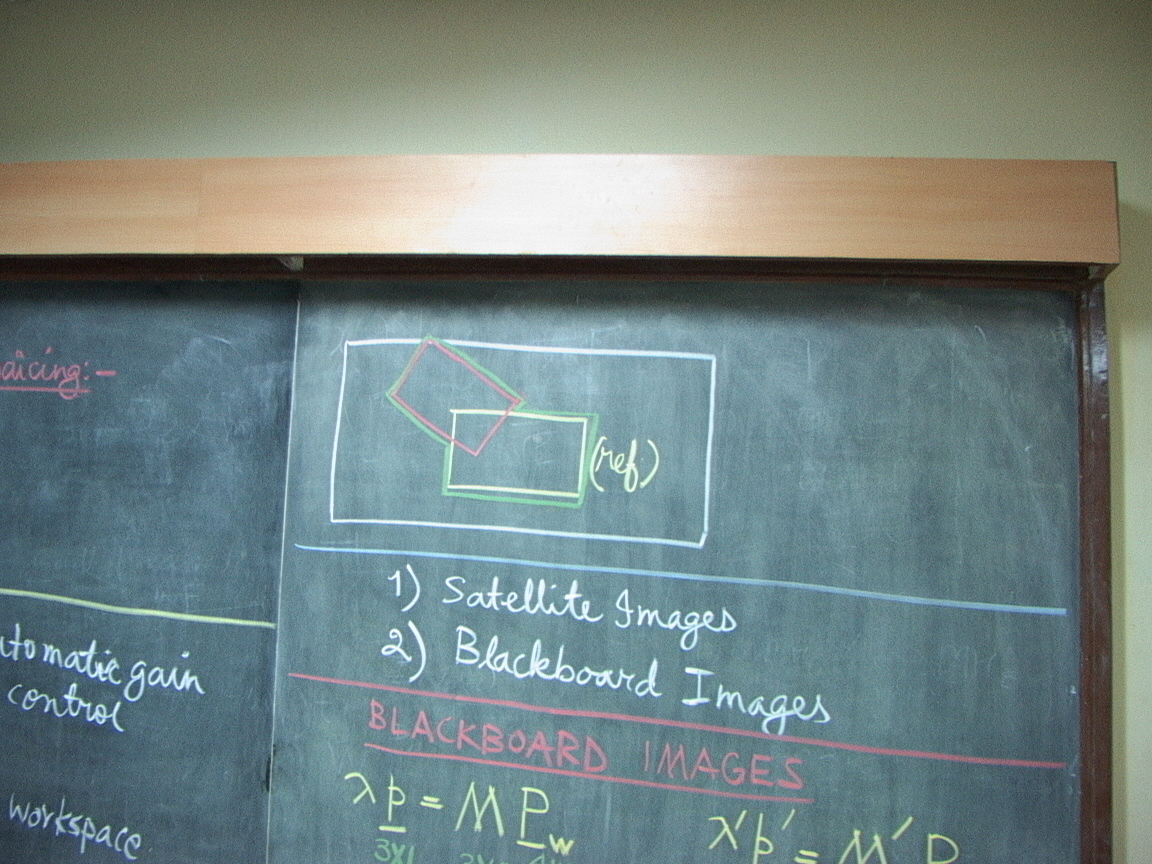 utomatic gain
control
workspace
(ref.)
1) Satellite Images
2) Blackboard Images
BLACKBOARD IMAGES
λp = M P_w
3X1
λ'p' = M' P